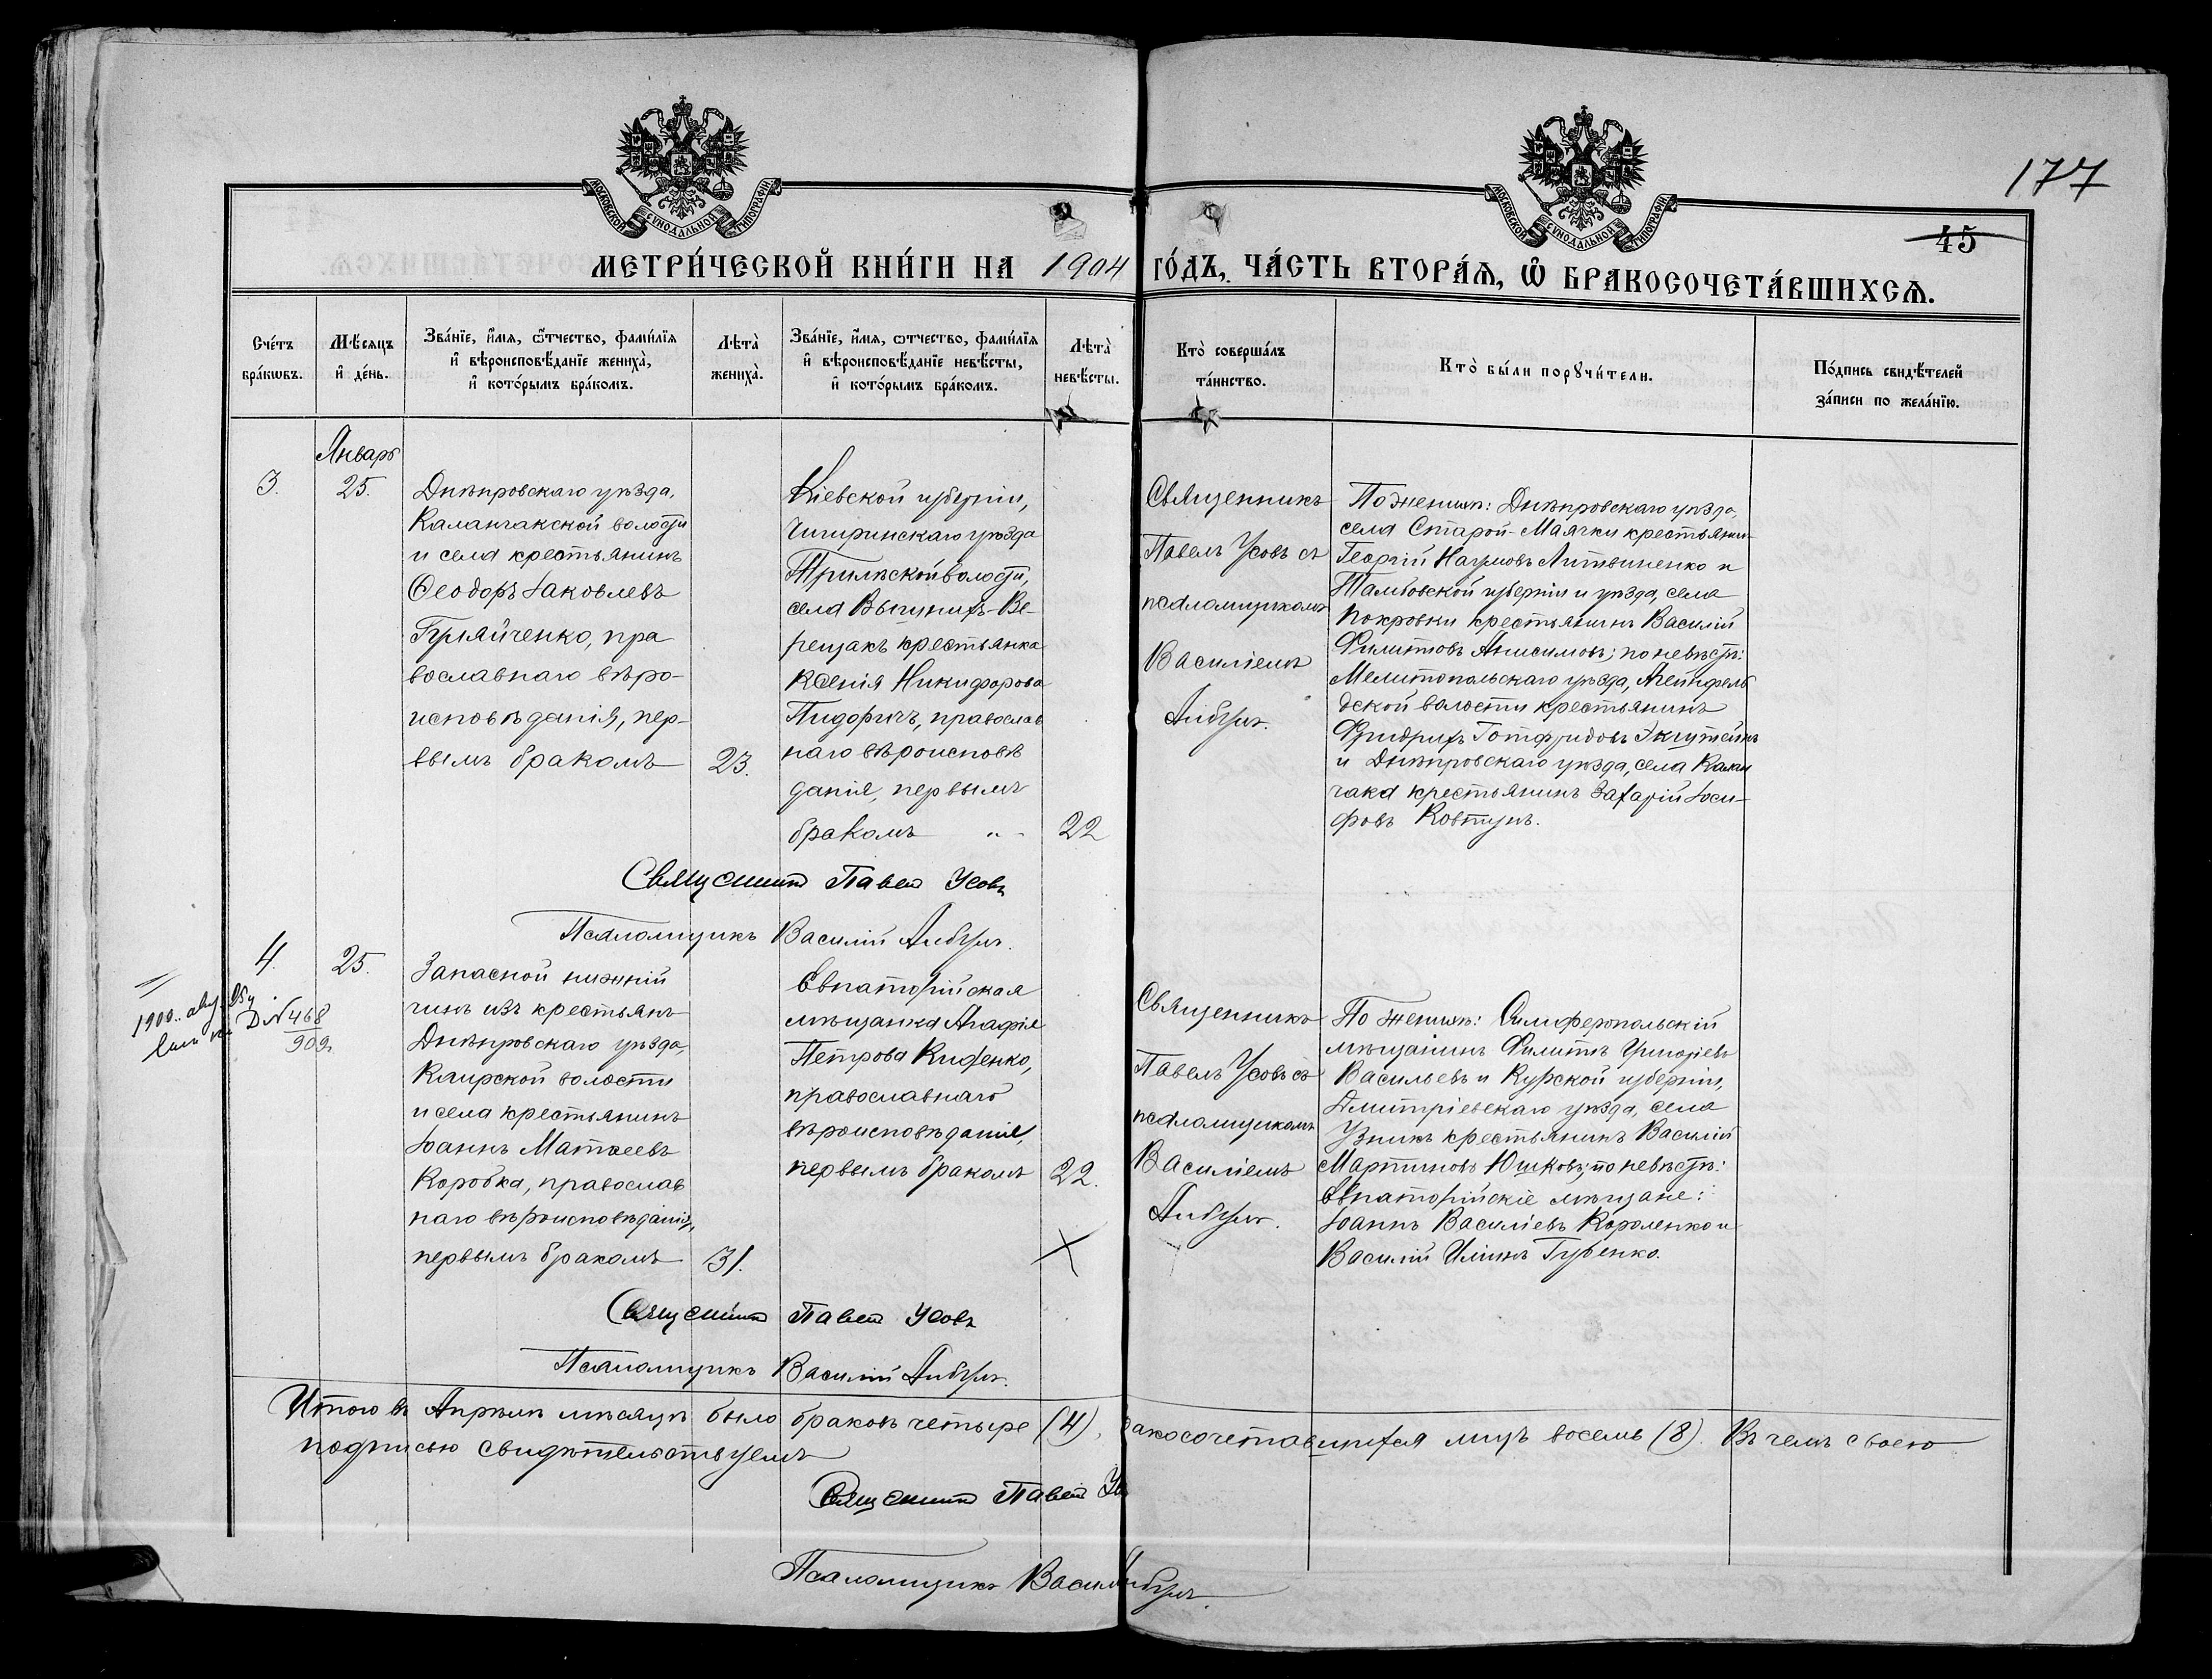 177
МОСКОВСКОЙ СѴНОДАЛЬНОЙ ТИПОГРАФІИ
МОСКОВСКОЙ СѴНОДАЛЬНОЙ ТИПОГРАФІИ
45
МЕТРИ́ЧЕСКОЙ КНИ́ГИ НА 1904 ГО́ДЪ, ЧА́СТЬ ВТОРА́Ѧ, Ѡ҆ БРАКОСОЧЕТА́ВШИХСѦ.
Сче́тъ
бра́кѡвъ.
Мѣ́сяцъ
и҆ де́нь.
Зва́нїе, и҆́мѧ, ѻ҆́тчество, фами́лїѧ
и҆ вѣроисповѣ́данїе жениха̀,
и҆ кото́рымъ бра́комъ.
Лѣта̀
жениха̀.
Зва́нїе, и҆́мѧ, ѻтчество, фами́лїѧ
и҆ вѣроисповѣ́данїе невѣ́сты,
и҆ кото́рымъ бра́комъ.
Лѣта̀
невѣ́сты.
Кто̀ соверша́лъ
та́инство.
Кто̀ бы́ли порꙋчи́тели.
По́дпись свидѣ́телей
за́писи по жела́нїю.
Январь
3.
25.
Днѣпровскаго уѣзда,
Каланчакской волости
и села крестьянинъ
Ѳеодоръ Іаковлевъ
пра
вославнаго вѣро-
исповѣданія, пер-
вымъ бракомъ
23.
Кіевской губерніи,
Чигиринскаго уѣзда
волости,
села Ве-
рещакъ крестьянка
Ксенія Никифорова
Пидоричъ, православ
наго вѣроисповѣ
данія, первымъ
бракомъ
22
Священникъ
Павелъ Усовъ съ
псаломщикомъ
Василіемъ
По женихѣ: Днѣпровскаго уѣзда,
села Старой-Маячки крестьянинъ
Георгій Наумовъ Литвиненко и
Тамбовской губерніи и уѣзда, села
Покровки крестьянинъ Василій
Филиповъ Анисимовъ; по невѣстѣ:
Мелитопольскаго уѣзда,
дской волости крестьянинъ
Фридрихъ Готфридовъ
и Днѣпровскаго уѣзда, села Калан
чака крестьянинъ Захарій Іоси-
фовъ Ковтунъ.
Священникъ Павелъ Усовъ
Псаломщикъ Василій
4.
25.
468
909
Запасной нижній
чинъ изъ крестьянъ
Днѣпровскаго уѣзда,
Каирской волости
и села крестьянинъ
Іоаннъ Матѳеевъ
Коробка, православ
наго вѣроисповѣданія,
первымъ бракомъ
31.
Евпаторійская
мѣщанка Агафія
Петрова
православнаго
вѣроисповѣданія,
первымъ бракомъ
22.
Священникъ
Павелъ Усовъ съ
псаломщикомъ
Василіемъ
По женихѣ: Симферопольскій
мѣщанинъ Филиппъ Григоріевъ
Васильевъ и Курской губерніи,
Дмитріевскаго уѣзда, села
крестьянинъ Василій
Мартиновъ Юшковъ; по невѣстѣ:
Евпаторійскіе мѣщане:
Іоаннъ Василіевъ Короленко и
Василій Илiинъ Губенко.
Священникъ Павелъ Усовъ
Псаломщикъ Василій
Итого въ Апрѣлѣ мѣсяцѣ было браковъ четыре (4), бракосочетавшихся лицъ восемь (8). Въ чемъ своею
подписью свидѣтельствуемъ
Священникъ Павелъ Ус
Псаломщикъ Васил